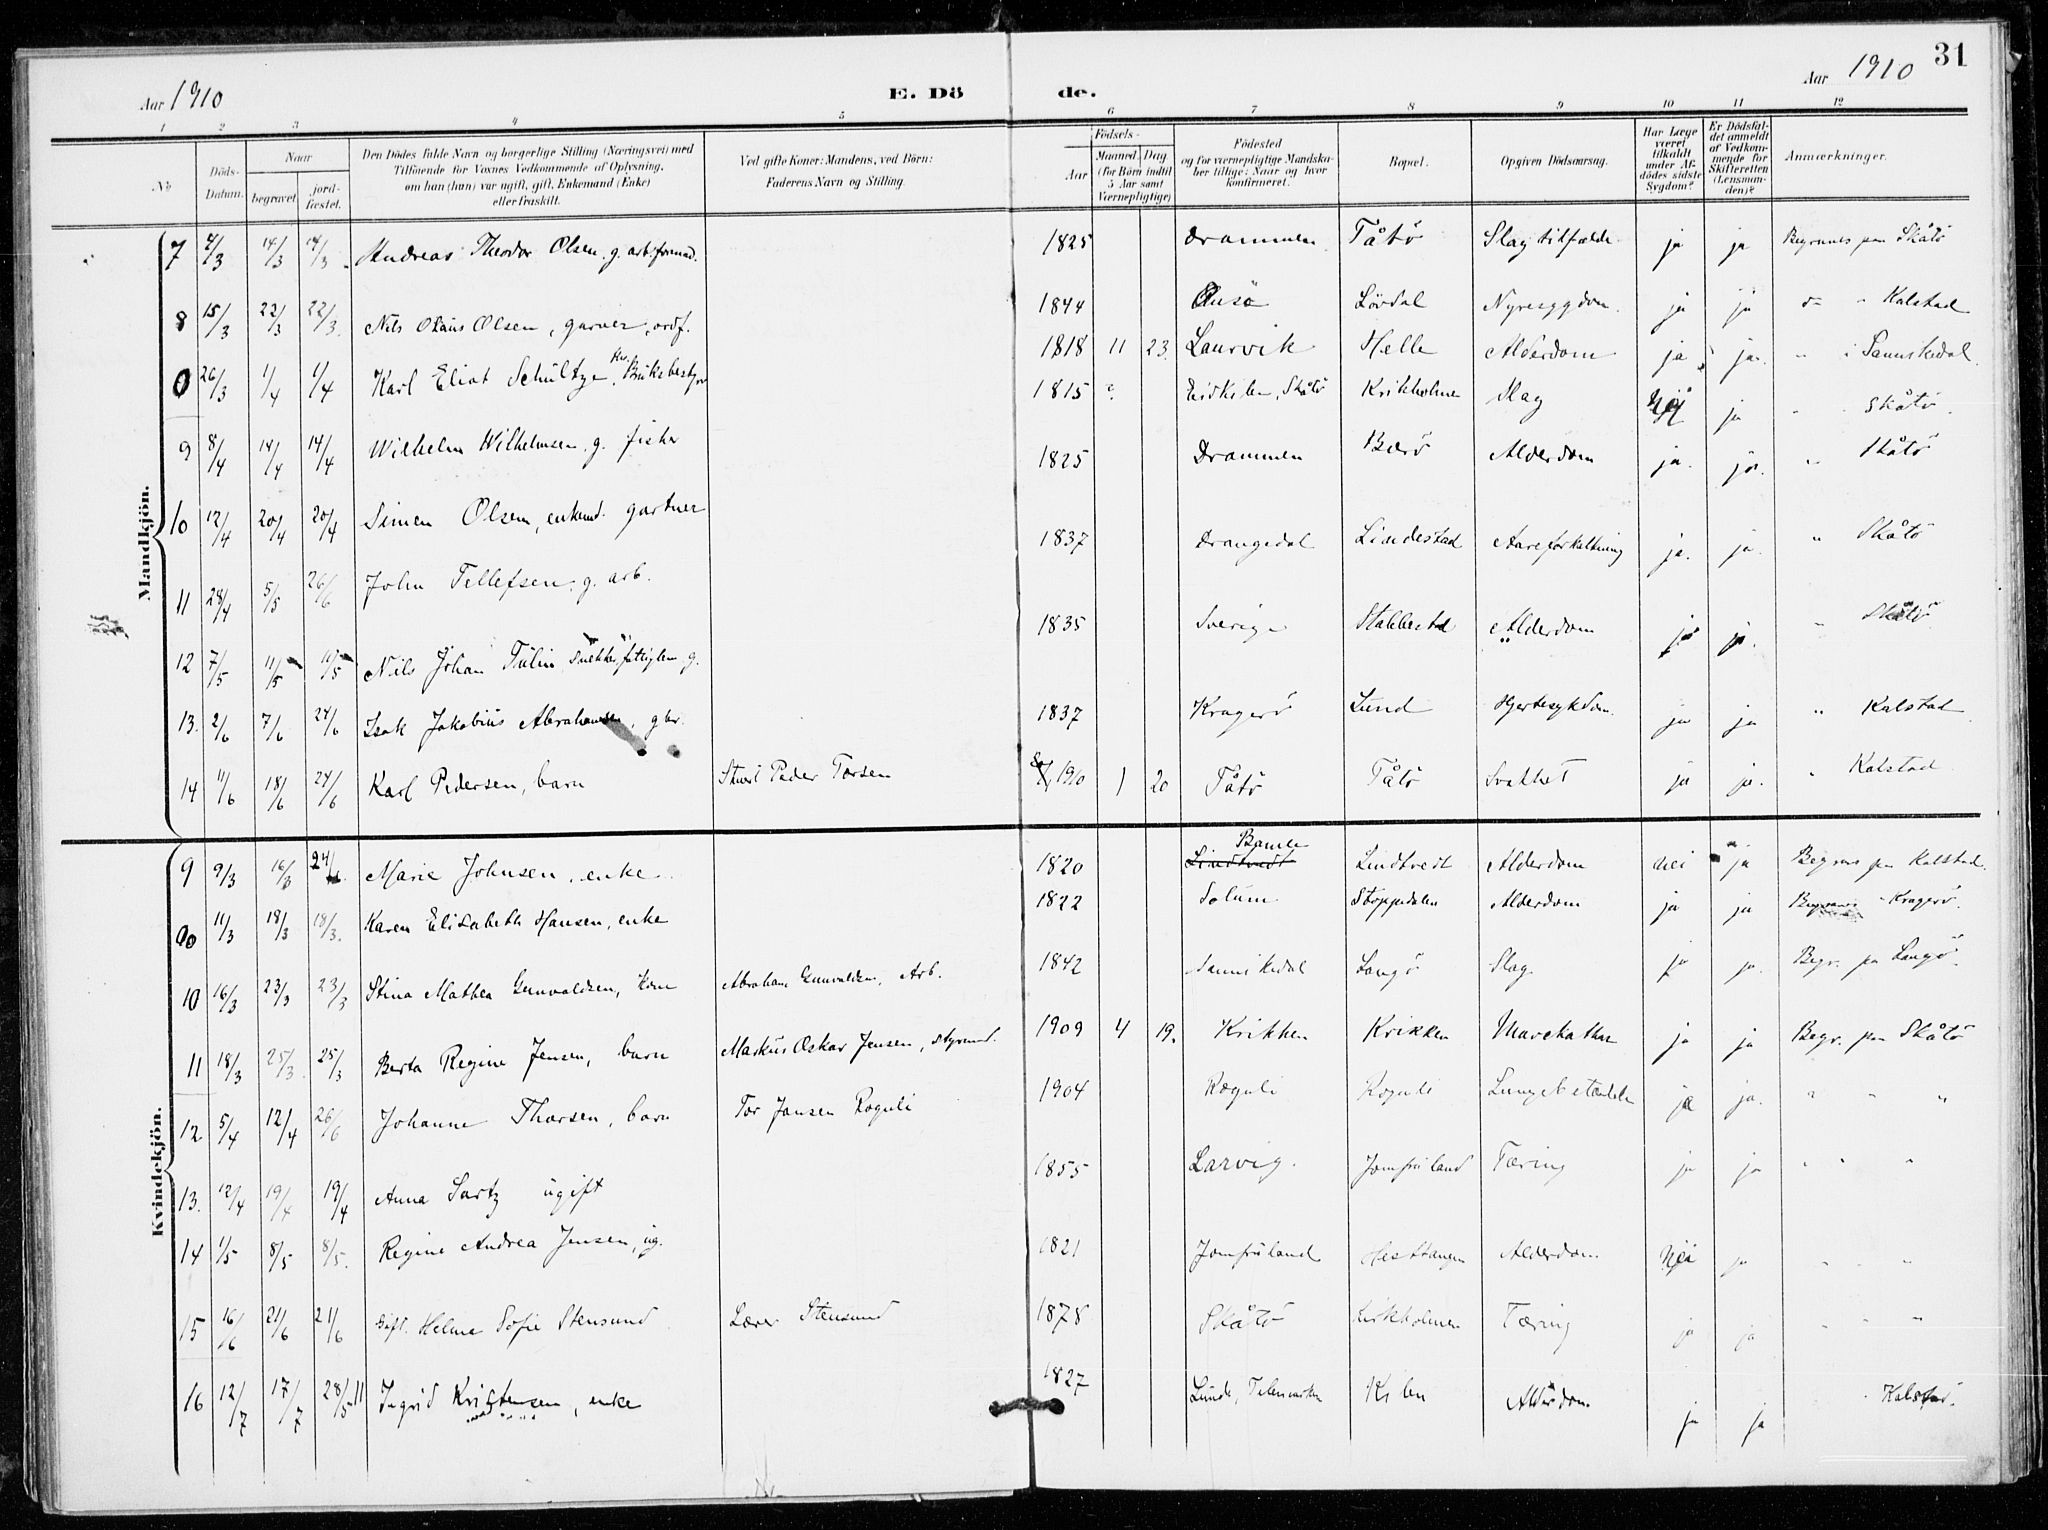 Aar 1910
E. Dö de.
Aar 1910 31
1 2 3 4 5 6 7 8 9 10 11 12
No
Döds-Datum.
Naar
begravet
jord-fæstet.
Den Dödes fulde Navn og borgerlige Stilling (Næringsvei) med
Tilföiende for Voxnes Vedkommende af Oplysning,
om han (hun) var ugift, gift, Enkemand (Enke)
eller fraskilt.
Ved gifte Koner: Mandens, ved Börn:
Faderens Navn og Stilling.
Födsels-
Aar
Maaned. Dag
(for Börn indtil
5 Aar samt
Værnepligtige)
Födested
og for værnepligtige Mandska-
ber tillige: Naar og hvor
konfirmeret.
Bopæl.
Opgiven Dödsaarsag.
Har Læge
været
tilkaldt
under Af-
dödes sidste
Sygdom?
Er Dödsfal-
det anmeldt
af Vedkom-
mende for
Skifteretten
(Lensman-
den)?
Anmærkninger.
Mandkjön.
7 14/3 14/3 Andreas Theodor Olsen, g. arb.formad. 1825 Drammen Tåtö Slagtilfælde ja ja Begraves paa Skåtö
8 15/3 22/3 22/3. Nils Olaus Olsen, garver, ordf. 1844 Lördal Nyresygdom. ja ja Kalstad
0 26/3 1/4 1/4 Karl Eliot Schültze, Bruksbestyr 1818 11 23. Laurvik Helle Alderdom ja ja. " i Sannikedal.
9 8/4 14/4 14/4 Wilhelm Wilhelmsen, g. fisker 1815 ? Eidkilen, Skåtö Krikholmen Slag Nej ja " Skåtö.
10 12/4 20/4 20/4 Simen Olsen, enkemd. gartner 1825 Drammen Bærö Alderdom ja. ja. " Skåtö
11 28/4 5/5 26/6 John Tellefsen, g. arb. 1837 Drangedal Lindestad Aareforkalkning ja. ja. " Skåtö
12 7/5 11/5 11/5 Nils Johan Tulin, g. 1835 Sverige Stabbestd Alderdom ja ja. " Skåtö
13. 2/6 7/6 24/6 Isak Jakobius Abrahamsen, gbr. 1837 Kragerö Lund Hjertesykdom. ja ja " Kalstad
14 11/6 18/6 24/6 Karl Pedersen, barn Peder Torsen 1910 1 20 Tåtö Tåtö Svakhet ja ja. " Kalstad
Kvindekjön.
9 9/3 16/3 24/ Marie Johnsen, enke. 1820 Lindtvedt Bamle Lindtvedt Alderdom nei ja Begraves paa Kalstad
11/3 18/3 18/3. Karen Elisabeth Hansen, enke 1822 Solum Stoppedalen Alderdom ja ja Kragerö.
10 16/3 23/3 23/3 Stina Mathea Gunvaldsen, kone Abraham Gunvaldsen, Arb. 1842 Sannikedal Langö Slag ja ja. Begr. paa Langö.
11 18/3 25/3. 25/3 Berta Regine Jensen, barn Markus Oskar Jensen, styrmd. 1909 4 19. Krikken Krikken ja ja Begr. paa Skåtö
12 5/4 12/4 26/6 Johanne Thorsen, barn Tor Jansen Roguli 1904 Roguli Roguli ja ja. " " "
13. 12/4 19/4 19/4 Anna Sartz ugift 1855 Larvig. Jomfruland Tæring ja ja " " "
14 1/5 8/5 8/5. Regine Andrea Jensen, ug. 1821 Jomfruland Hesttangen Alderdom Nei ja " " "
15 16/6 21/6 21/6 Gift. Helene Sofie Stensund Lærer Stensund 1878 Skåtö Tæring ja ja " " "
16 12/7 17/7 28/5 11 Ingrid Kristensen, enke 1827 Lunde, Telemarken Kilen Alderdom ja ja " Kalstad.